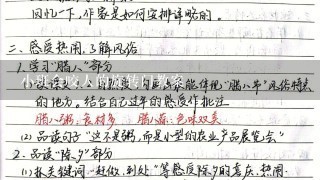 回忆一下,作家是如何安排详略的。
二、感受热闹,了解风俗
1.学习“腊八”部分
的地方。结合自己过年的感受作批注
腊八粥:食材多 腊八蒜:色味双美
(2)品读句子“这不是粥,而是小型的农业产品展览会”
2.品读“除夕”部分
(1)抓关键词“赶做、到处”等感受除夕的喜庆、热闹